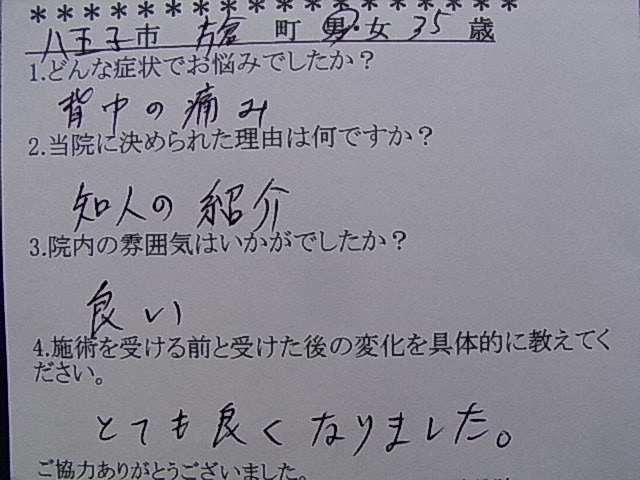 ＊＊＊＊＊＊＊＊＊＊＊＊＊＊＊＊＊＊
八王子市 方倉 町 男・女 35 歳
1.どんな症状でお悩みでしたか？
背中の痛み
2.当院に決められた理由は何ですか？
知人の紹介
3.院内の雰囲気はいかがでしたか？
良い
4.施術を受ける前と受けた後の変化を具体的に教えてく
ださい。
とても良くなりました。
ご協力ありがとうございました。